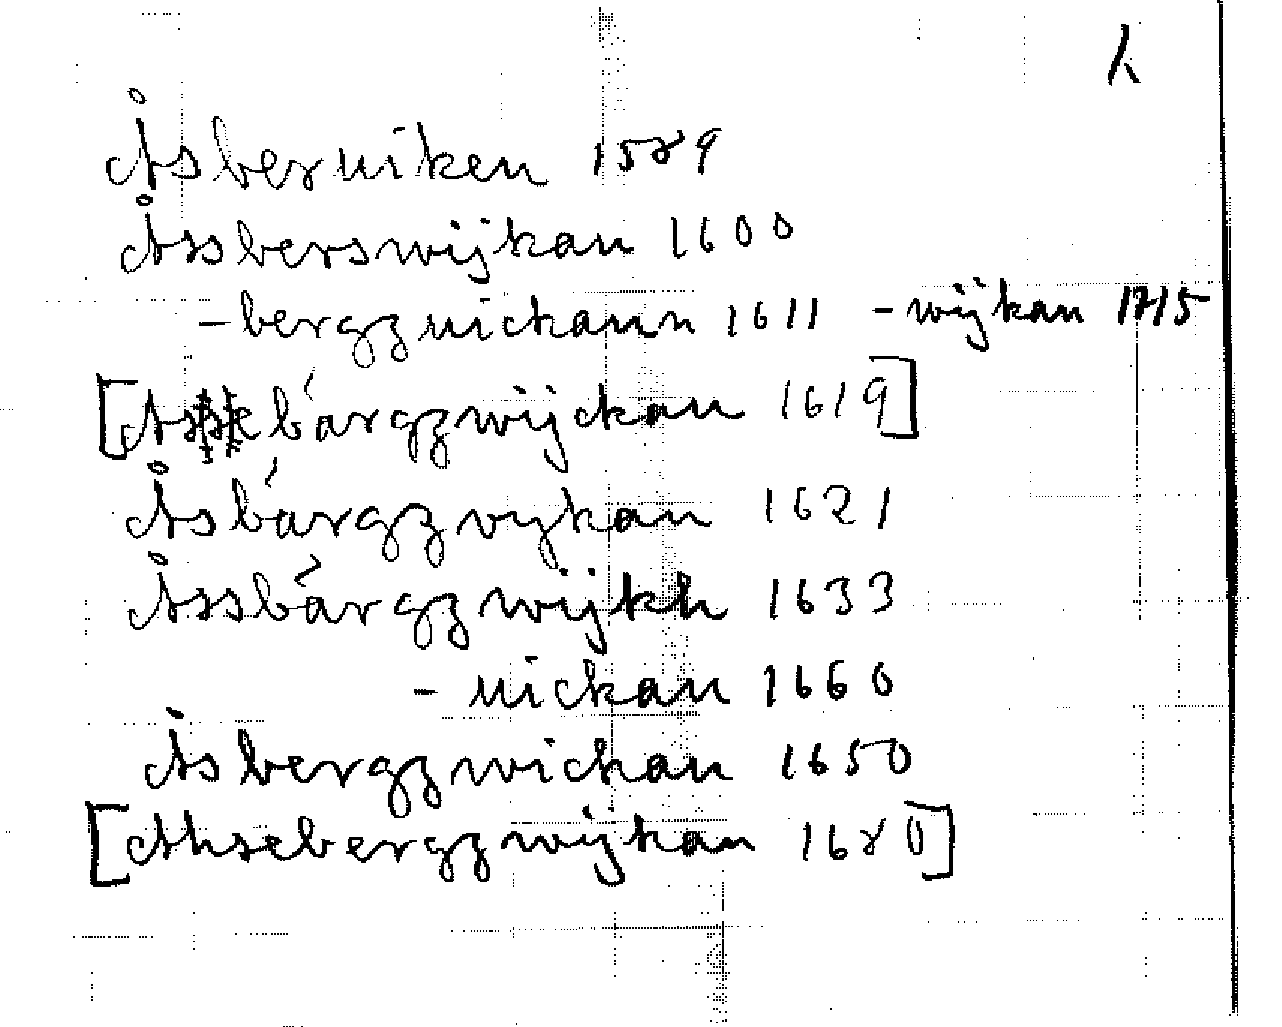 k
Åsberuiken 1589
Åssberswijkan 1600
-bergzuickann 1611 -wijkan 1715
bárgzwijckan 1619]
Åsbárgzvykan 1621
Åssbärgzwijkh 1633
-uickan 1660
Åsbergzwickan 1650
[Ahsebergzwijkan 1680]